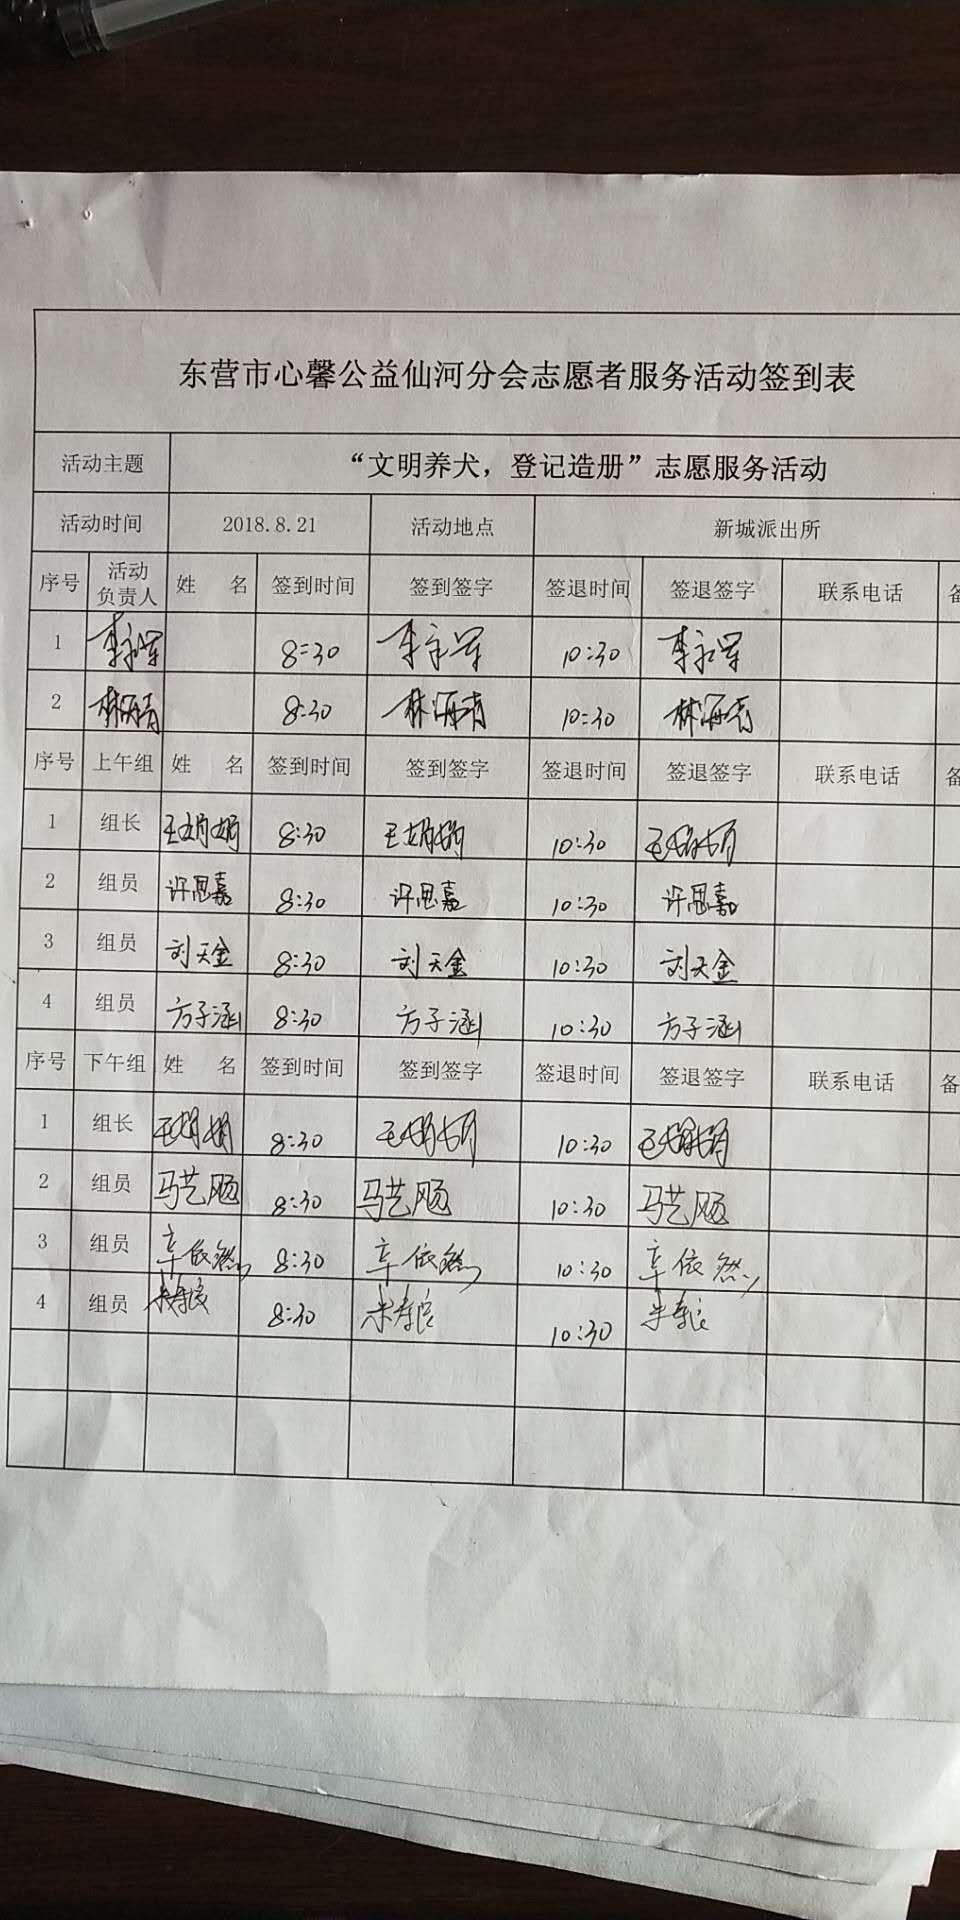 东营市心馨公益仙河分会志愿者服务活动签到表
活动主题 “文明养犬，登记造册”志愿服务活动
活动时间 2018.8.21 活动地点 新城派出所
序号 活动负责人 姓 名 签到时间 签到签字 签退时间 签退签字 联系电话 备
1 李永军 8:30 李永军 10:30 李永军
2 林海青 8:30 林海青 10:30 林海青
序号 上午组 姓 名 签到时间 签到签字 签退时间 签退签字 联系电话 备
1 组长 王娟娟 8:30 王娟娟 10:30 王娟娟
2 组员 许思嘉 8:30 许思嘉 10:30 许思嘉
3 组员 刘天金 8:30 刘天金 10:30 刘天金
4 组员 方子涵 8:30 方子涵 10:30 方子涵
序号 下午组 姓 名 签到时间 签到签字 签退时间 签退签字 联系电话 备
1 组长 王娟娟 8:30 王娟娟 10:30 王娟娟
2 组员 马艺飏 8:30 马艺飏 10:30 马艺飏
3 组员 辛依然 8:30 辛依然 10:30 辛依然
4 组员 8:30 10:30